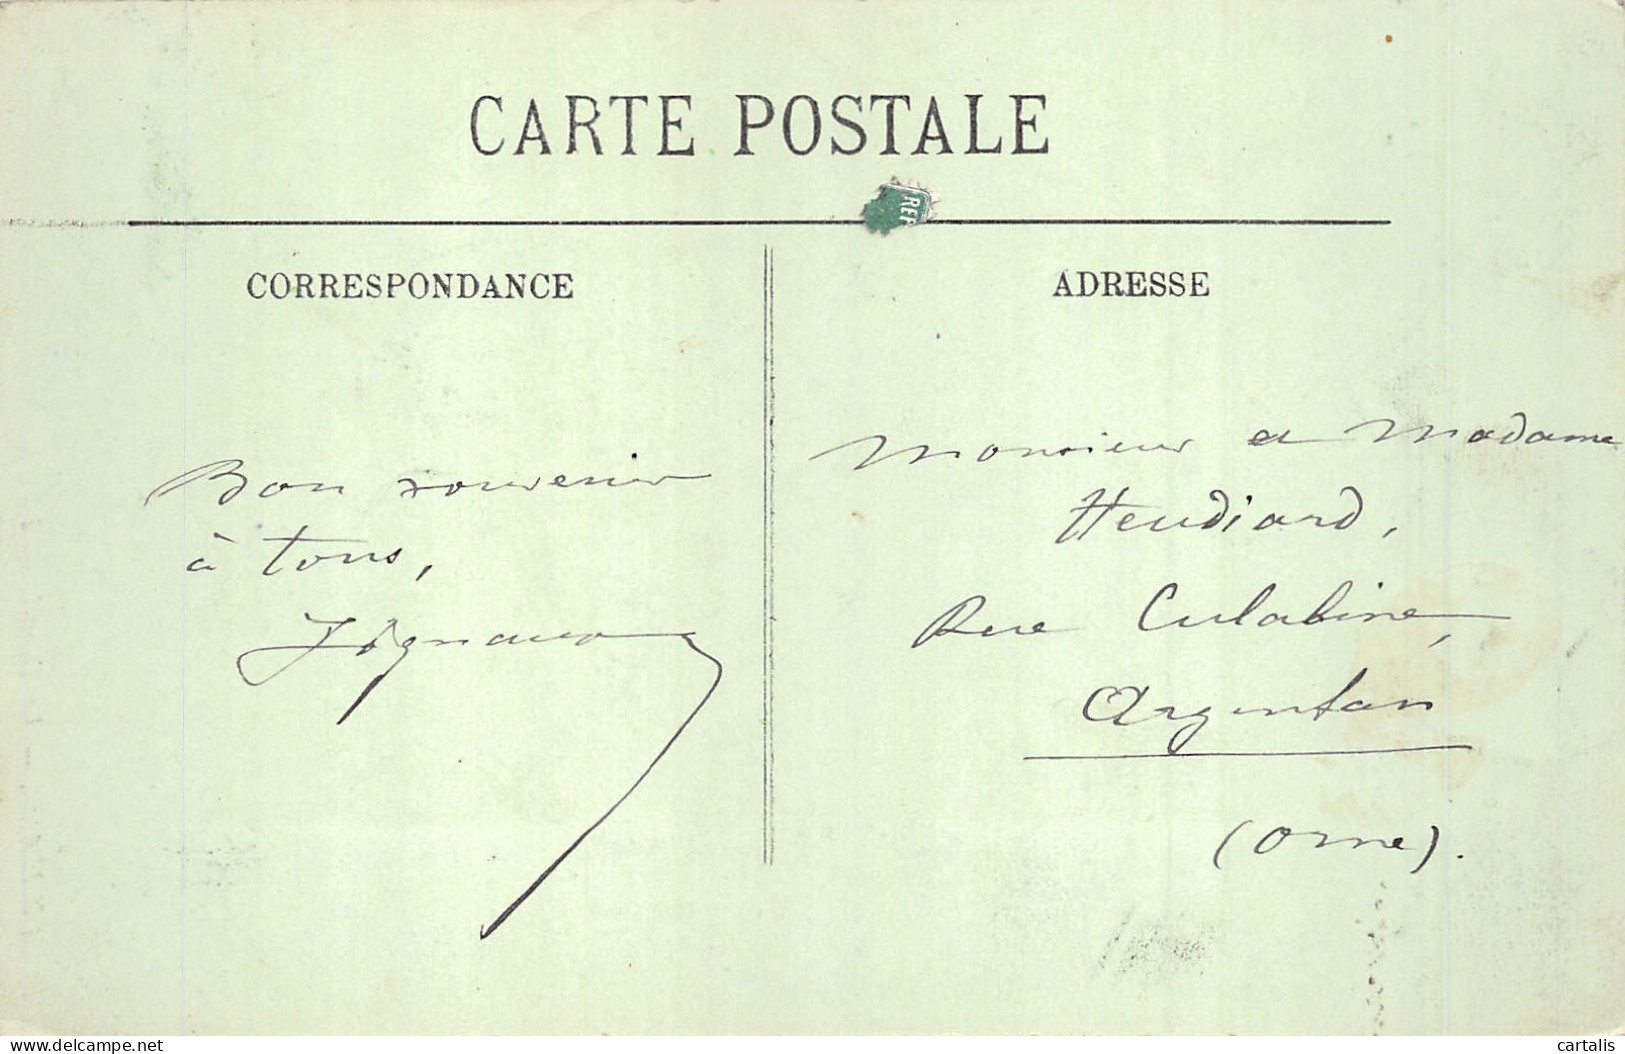 CARTE POSTALE
REP
CORRESPONDANCE
Bon souvenir
à tous,
ADRESSE
Monsieur et Madame
Heudiard,
Rue
Argentan
(Orne).
www.delcampe.net
cartalis